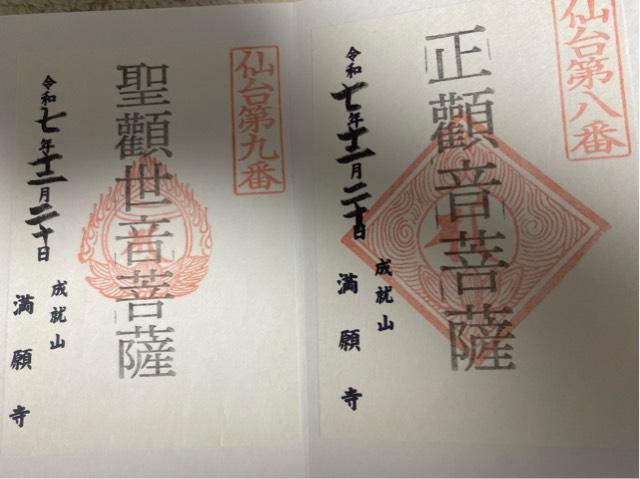 仙台第八番
正觀音菩薩
令和七年十二月二十日
成就山
満願寺
仙台第九番
聖觀世音菩薩
令和七年十二月二十日
成就山
満願寺